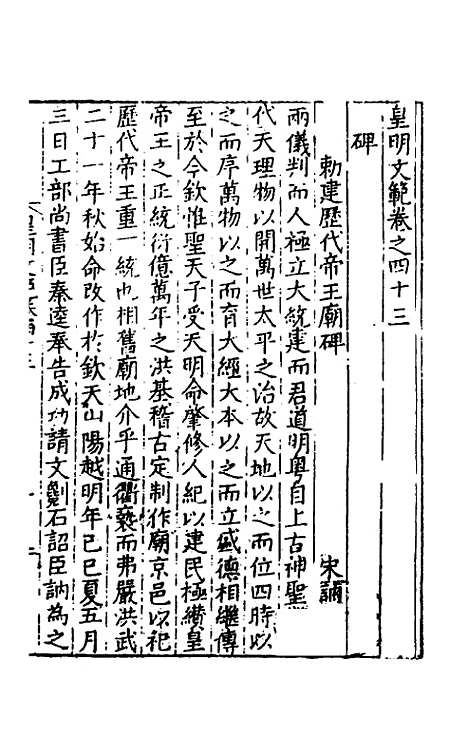 皇明文範卷之四十三
碑
勅建歷代帝王廟碑 宋訥
兩儀判而人極立大統建而君道明粵自上古神聖
代天理物以開萬世太平之治故天地以之而位四時以
之而序萬物以之而育大經大本以之而立盛德相繼傳
至於今欽惟聖天子受天明命肇修人紀以建民極纘皇
帝王之正統衍億萬年之洪基稽古定制作廟京邑以祀
歷代帝王重一統也相舊廟地介乎通衢褻而弗嚴洪武
二十一年秋始命改作於欽天山陽越明年己巳夏五月
三日工部尚書臣秦逵奉告成功請文劖石詔臣訥為之